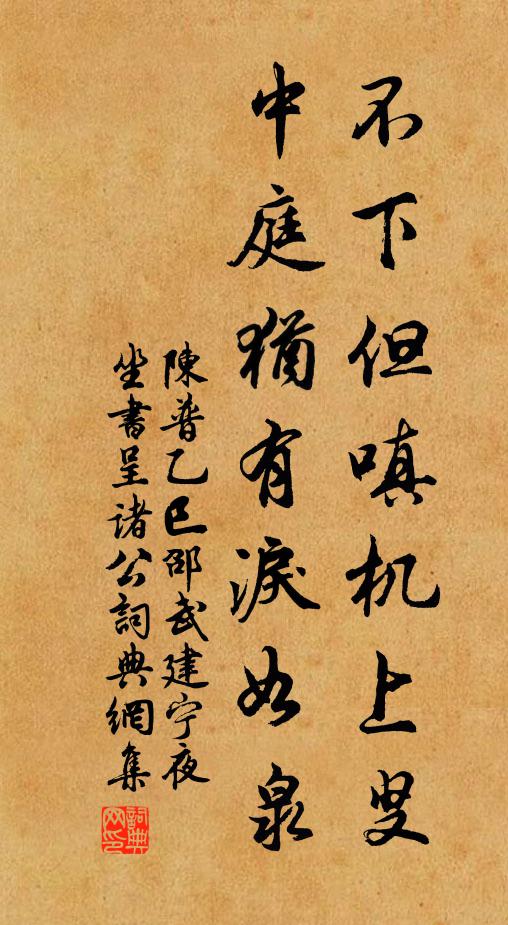 不下但嗔机上叟
中庭猶有淚如泉
陳普乙巳邵武建宁夜
坐書呈諸公詞典網集
詞典
网印